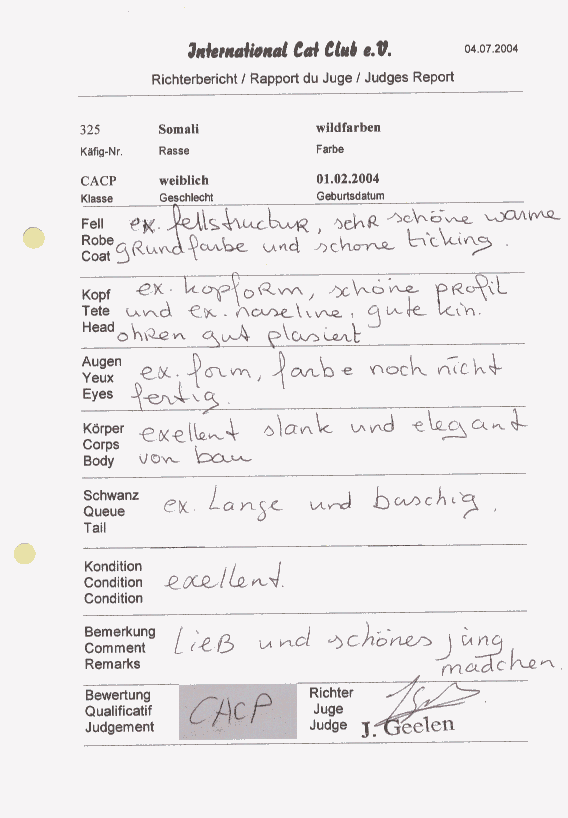 International Cat Club e.V. 04.07.2004
Richterbericht / Rapport du Juge / Judges Report
325 Somali wildfarben
Käfig-Nr. Rasse Farbe
CACP weiblich 01.02.2004
Klasse Geschlecht Geburtsdatum
Fell ex. fellstructur, sehr schöne warme
Robe grundfarbe und schone ticking.
Coat
Kopf ex. kopform, schöne profil
Tete und ex. naseline, gute kin.
Head ohren gut plasiert
Augen ex. form, farbe noch nicht
Yeux
Eyes fertig.
Körper exellent slank und elegant
Corps
Body von bau
Schwanz ex. Lange und buschig.
Queue
Tail
Kondition
Condition exellent.
Condition
Bemerkung Ließ und schönes jüng
Comment
Remarks mädchen.
Bewertung CACP Richter
Qualificatif Juge
Judgement Judge J. Geelen